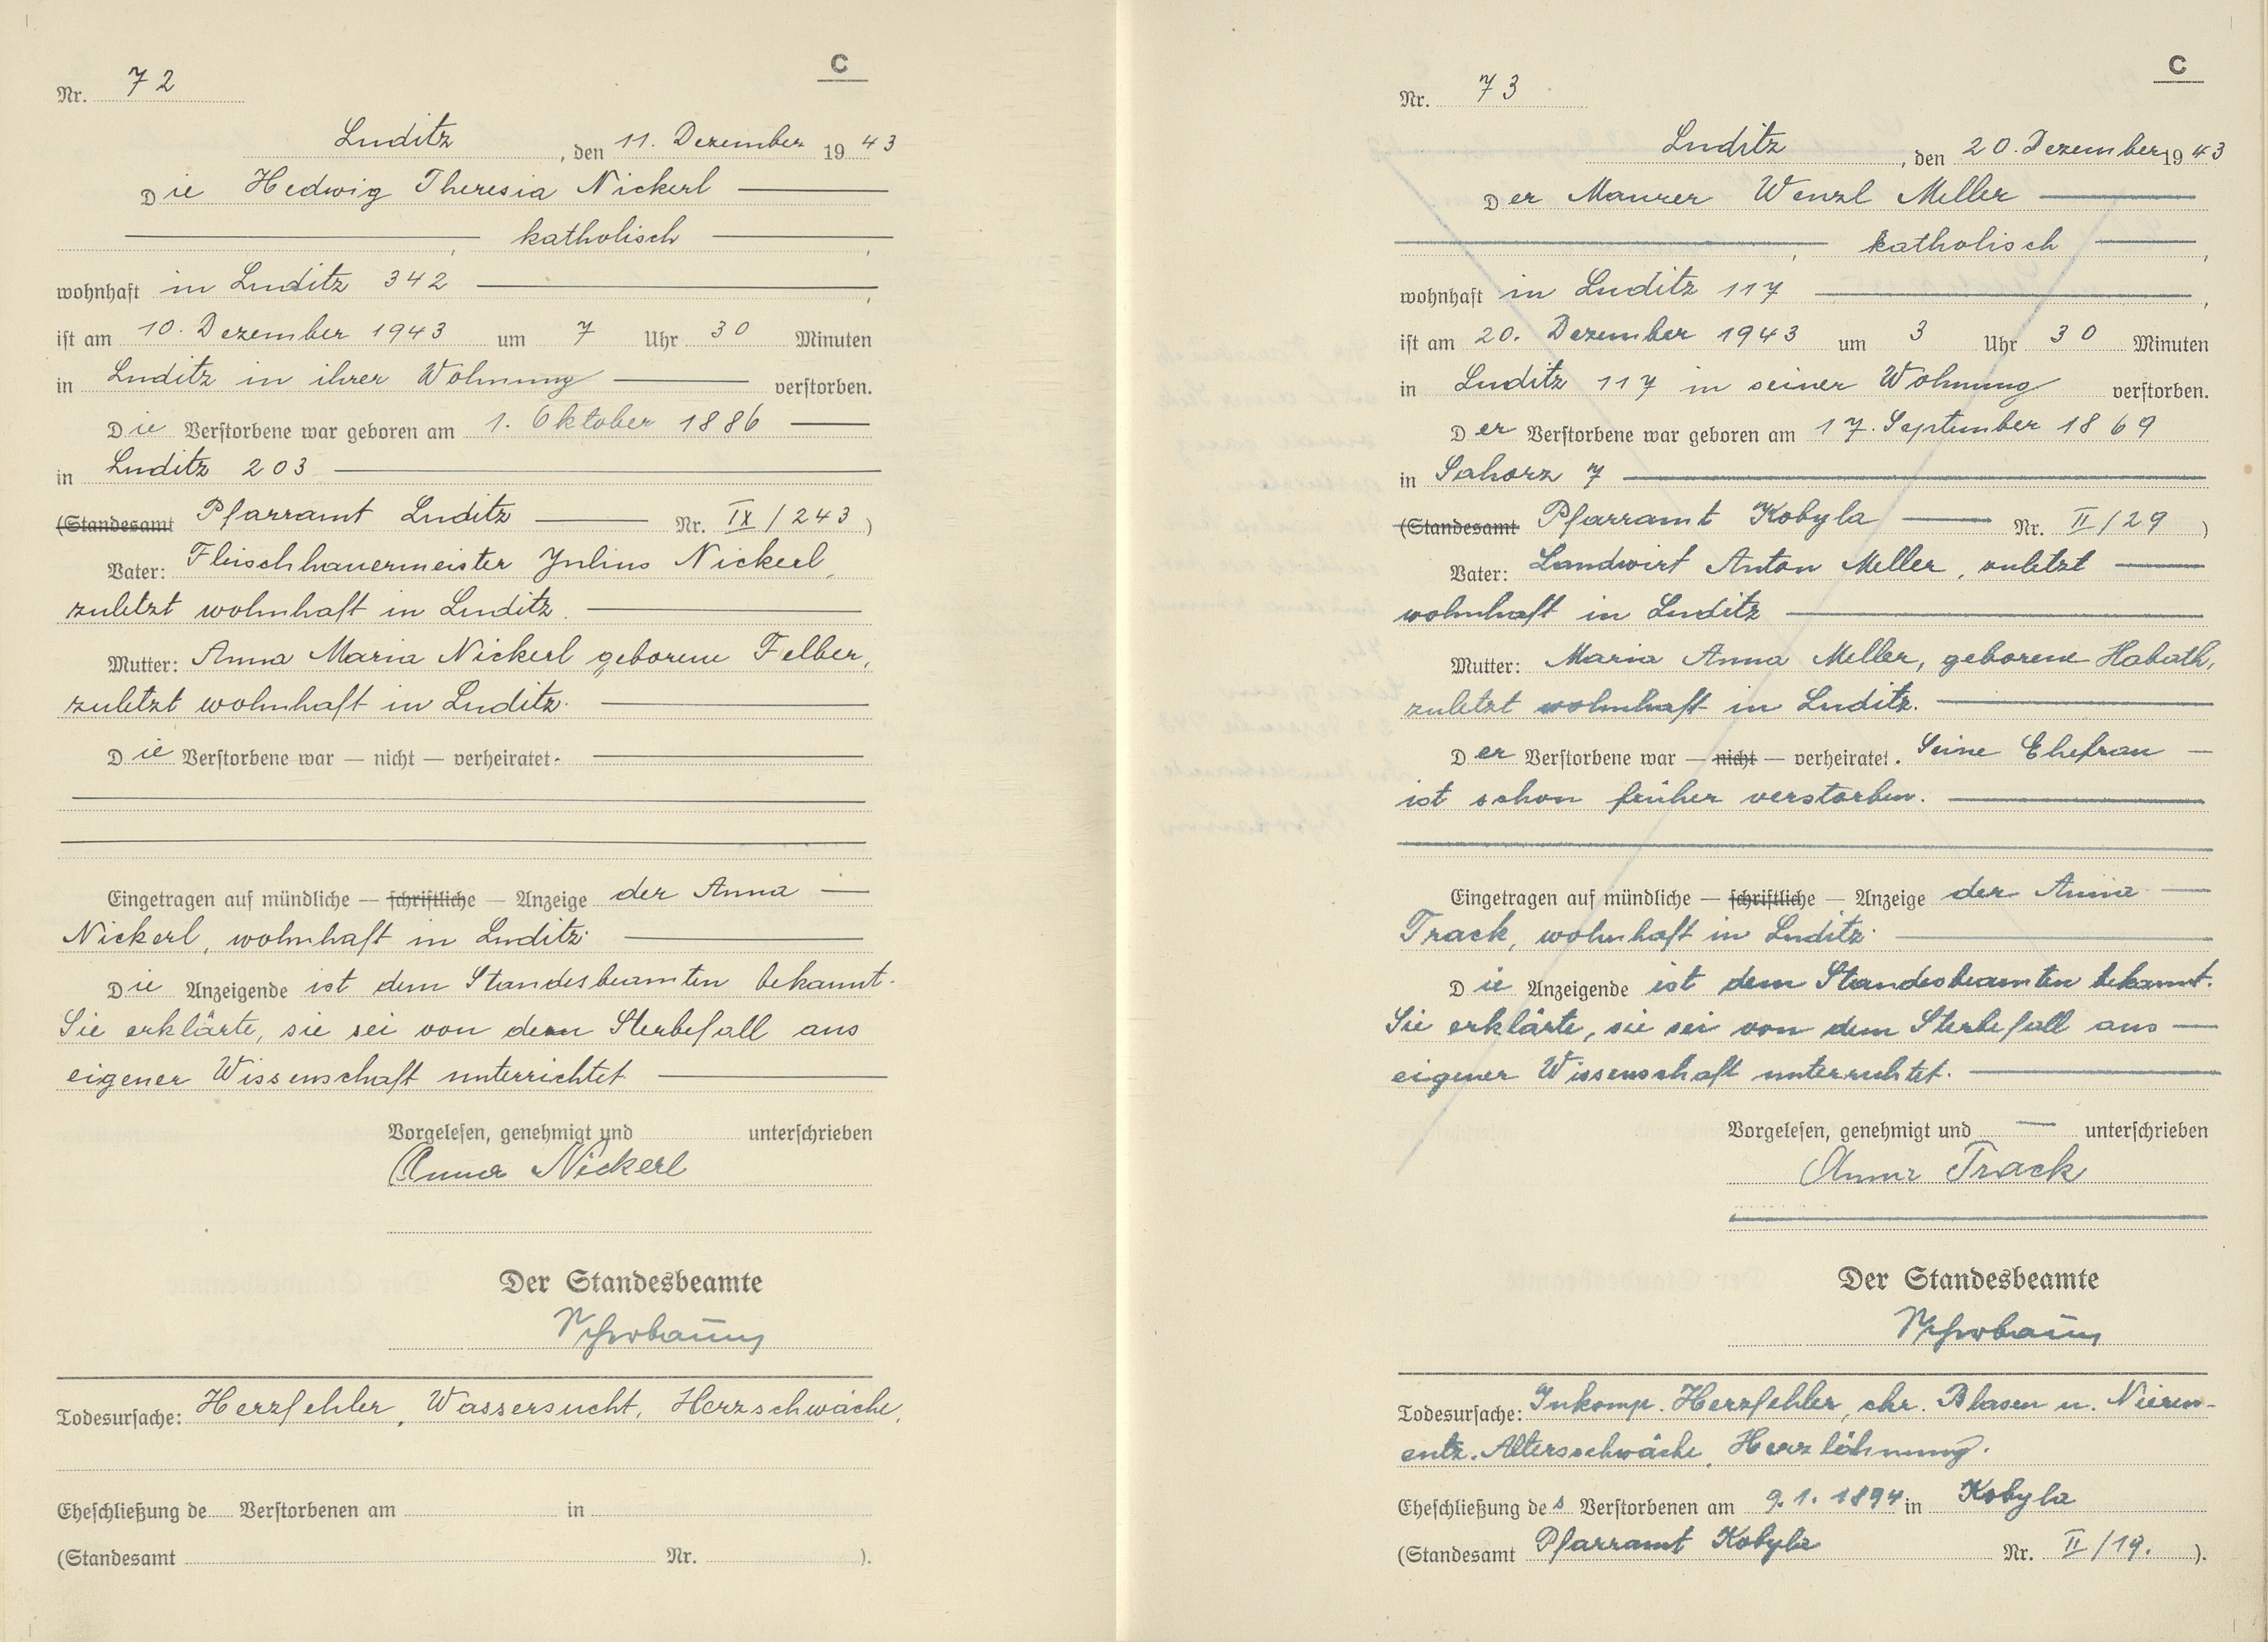 C
Nr. 72
Luditz, den 11. Dezember 1943
Die Hedwig Theresia Nickerl
, katholisch ,
wohnhaft in Luditz 342 ,
ist am 10. Dezember 1943 um 7 Uhr 30 Minuten
in Luditz in ihrer Wohnung verstorben.
Die Verstorbene war geboren am 1. Oktober 1886
in Luditz 203
(Standesamt Pfarramt Luditz Nr. IX/243)
Vater: Fleischhauermeister Julius Nickerl,
zuletzt wohnhaft in Luditz.
Mutter: Anna Maria Nickerl geborene Felber,
zuletzt wohnhaft in Luditz.
Die Verstorbene war — nicht — verheiratet.
Eingetragen auf mündliche — schriftliche — Anzeige der Anna
Nickerl, wohnhaft in Luditz.
Die Anzeigende ist dem Standesbeamten bekannt.
Sie erklärte, sie sei von dem Sterbefall aus
eigener Wissenschaft unterrichtet.
Vorgelesen, genehmigt und unterschrieben
Anna Nickerl
Der Standesbeamte
Todesursache: Herzfehler, Wassersucht, Herzschwäche.
Eheschließung de Verstorbenen am in
(Standesamt Nr. ).
C
Nr. 73
Luditz, den 20. Dezember 1943
Der Maurer Wenzl Meller
, katholisch ,
wohnhaft in Luditz 117 ,
ist am 20. Dezember 1943 um 3 Uhr 30 Minuten
in Luditz 117 in seiner Wohnung verstorben.
Der Verstorbene war geboren am 17. September 1869
in Sahorz 7
(Standesamt Pfarramt Kobyla Nr. II/29)
Vater: Landwirt Anton Meller, zuletzt
wohnhaft in Luditz
Mutter: Maria Anna Meller, geborene Habath,
zuletzt wohnhaft in Luditz.
Der Verstorbene war — nicht — verheiratet. Seine Ehefrau
ist schon früher verstorben.
Eingetragen auf mündliche — schriftliche — Anzeige der Anna
Track, wohnhaft in Luditz.
Die Anzeigende ist dem Standesbeamten bekannt.
Sie erklärte, sie sei von dem Sterbefall aus
eigener Wissenschaft unterrichtet.
Vorgelesen, genehmigt und unterschrieben
Anna Track
Der Standesbeamte
Todesursache: Inkomp. Herzfehler, chr. Blasen u. Nieren-
entz. Altersschwäche, Herzlähmung.
Eheschließung des Verstorbenen am 9.1.1894 in Kobyla
(Standesamt Pfarramt Kobyla Nr. II/19.).